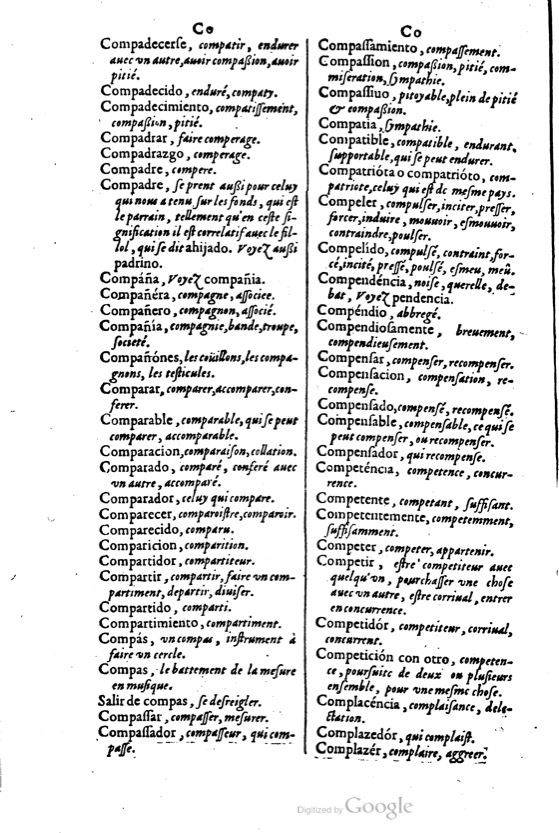 Co
Compadecerſe, compatir, endurer
auec vn autre, auoir compaßion, auoir
pitié.
Compadecido, enduré, compaty.
Compadecimiento, compatiſſement,
compaßiun, pitié.
Compadrar, faire comperage.
Compadrazgo, comperage.
Compadre, compere.
Compadre, ſe prent außi pour celuy
qui nous a tenu ſur les fonds, qui eſt
le parrain, tellement qu'en ceſte ſi-
gnification il eſt correlatif auec le fil-
lol, qui ſe dit ahijado. Voyez außi
padrino.
Compáña, Voyez compañia.
Compañéra, compagne, aſſociee.
Compañero, compagnon, aſſocié.
Compañía, compagnie, bande, troupe,
ſocieté.
Compañónes, les coüillons, les compa-
gnons, les teſticules.
Comparar, comparer, accomparer, con-
ferer.
Comparable, comparable, qui ſe peut
comparer, accomparable.
Comparacion, comparaiſon, collation.
Comparado, comparé, conferé auec
vn autre, accomparé.
Comparador, celuy qui compare.
Comparecer, comparoiſtre, comparoir.
Comparecido, comparu.
Comparicion, comparition.
Compartidor, compartiteur.
Compartir, compartir, faire vn com-
partiment, departir, diuiſer.
Compartido, comparti.
Compartimiento, compartiment.
Compás, vn compas, inſtrument à
faire vn cercle.
Compas, le battement de la meſure
en muſique.
Salir de compas, ſe deſreigler.
Compaſſar, compaſſer, meſurer.
Compaſſador, compaſſeur, qui com-
paſſe.
Co
Compaſſamiento, compaſſement.
Compaſſion, compaßion, pitié, com-
miſeration, ſympathie.
Compaſſiuo, pitoyable, plein de pitié
& compaßion.
Compatia, ſympathie.
Compatible, compatible, endurant,
ſupportable, qui ſe peut endurer.
Compatrióta o compatrióto, com-
patriote, celuy qui eſt de meſme pays.
Compeler, compulſer, inciter, preſſer,
forcer, induire, mouuoir, eſmouuoir,
contraindre, poulſer.
Compelido, compulſé, contraint, for-
cé, incité, preſſé, poulſé, eſmeu, meü.
Compendéncia, noiſe, querelle, de-
bat, Voyez pendencia.
Compéndio, abbregé.
Compendioſamente, breuement,
compendieuſement.
Compenſar, compenſer, recompenſer.
Compenſacion, compenſation, re-
compenſe.
Compenſado, compenſé, recompenſé.
Compenſable, compenſable, ce qui ſe
peut compenſer, ou recompenſer.
Compenſador, qui recompenſe.
Competéncia, competence, concur-
rence.
Competente, competant, ſuffiſant.
Competentemente, competemment,
ſuffiſamment.
Competer, competer, appartenir.
Competir, eſtre competiteur auec
quelqu'vn, pourchaſſer vne choſe
auec vn autre, eſtre corriual, entrer
en concurrence.
Competidór, competiteur, corriual,
concurrent.
Competición con otro, competen-
ce, pourſuite de deux ou pluſieurs
enſemble, pour vne meſme choſe.
Complacéncia, complaiſance, dele-
ctation.
Complazedór, qui complaiſt.
Complazér, complaire, aggreer.
Digitized by Google